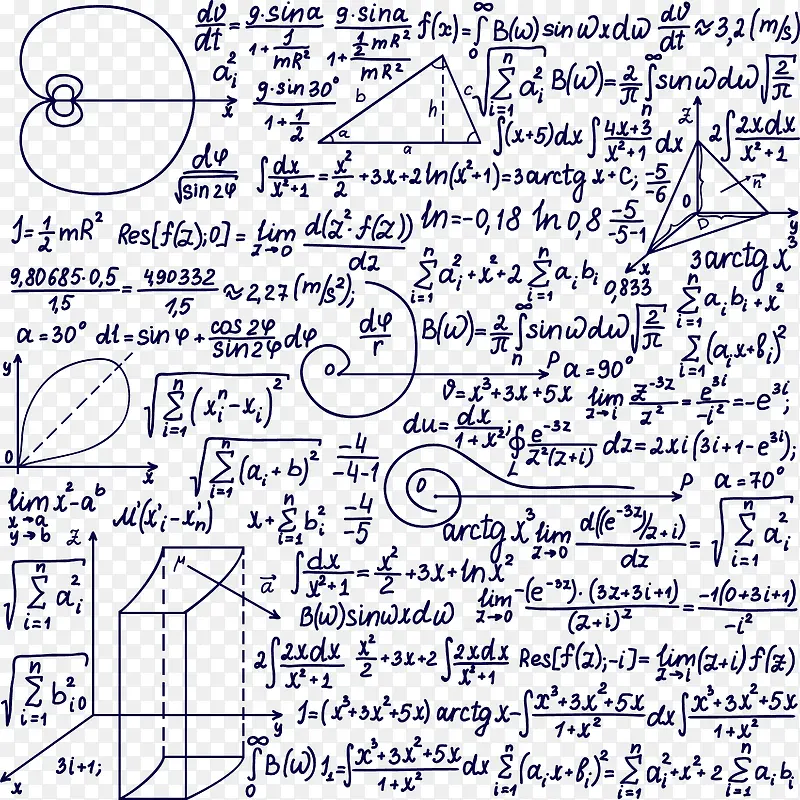 dv/dt = g·sinα/(1+J/mR²) g·sinα/(1+½mR²/mR²) f(x)=∫₀^∞ B(w)sinwxdw dv/dt ≈ 3,2 (m/s)
a_i² x b c h a a √(∑_{i=1}^n a_i²) B(w)=2/π ∫_n^∞ sinwdw √(2/π)
g·sin30°/(1+1/2) ∫(x+5)dx ∫(4x+3)/(x²+1) dx z 2∫2xdx/(x²+1)
dφ/√sin2φ ∫dx/(x²+1) = x²/2 +3x+2ln(x²+1)=3arctg x+C; -5/-6 0 D n⃗ y x
J=½mR² Res[f(z);0] = lim_{z→0} d(z²·f(z))/dz ln=-0,18 ln0,8 -5/(-5-1) 3arctg x³
9,80685·0,5/1,5 = 490332/1,5 ≈2,27(m/s²); ∑_{i=1}^n a_i²+x²+2 ∑_{i=1}^n a_i b_i 0,833 ∑_{i=1}^n a_i b_i+x²
α=30° dl=sinφ+cos2φ/sin2φ dφ dφ/r B(w)=2/π ∫_n^∞ sinwdw √(2/π) ∑_{i=1}(a_i x+b_i)²
y 0 x O P α=90°
√(∑_{i=1}^n (x_i^n-x_i)²) v=x³+3x+5x lim_{z→i} z^{-3z}/z² = e^{3i}/-i² =-e^{3i};
du=dx/(1+x²); ∮_L e^{-3z}/(z²(z+i)) dz=2xi(3i+1-e^{3i});
√(∑_{i=1}^n (a_i+b)²) -4/(-4-1) O P α=70°
lim_{x→a, y→b} x²-a^b μ'(x'_i-x'_n) x+∑_{i=1}^n b_i² -4/-5 arctg x³ lim_{z→0} d((e^{-3z})/z+i)/dz = √(∑_{i=1}^n a_i²)
z μ a⃗ ∫dx/(x²+1) = x²/2 +3x+lnx²
√(∑_{i=1}^n a_i²) B(w)sinwxdw lim_{z→0} -(e^{-3z})·(3z+3i+1)/(z+i)² = -1(0+3i+1)/-i²
√(∑_{i=1}^n b_{i0}²) 2∫2xdx/(x²+1) x²/2 +3x+2∫2xdx/(x²+1) Res[f(z);-i]= lim_{z→i}(z+i)f(z)
y J=(x³+3x²+5x)arctg x-∫(x³+3x²+5x)/(1+x²) dx ∫(x³+3x²+5x)/(1+x²)
x 3i+1; ∫₀^∞ B(w) J₁=∫(x³+3x²+5x)/(1+x²) dx ∑_{i=1}^n (a_i x+b_i)²=∑_{i=1}^n a_i²+x²+2∑_{i=1}^n a_i b_i